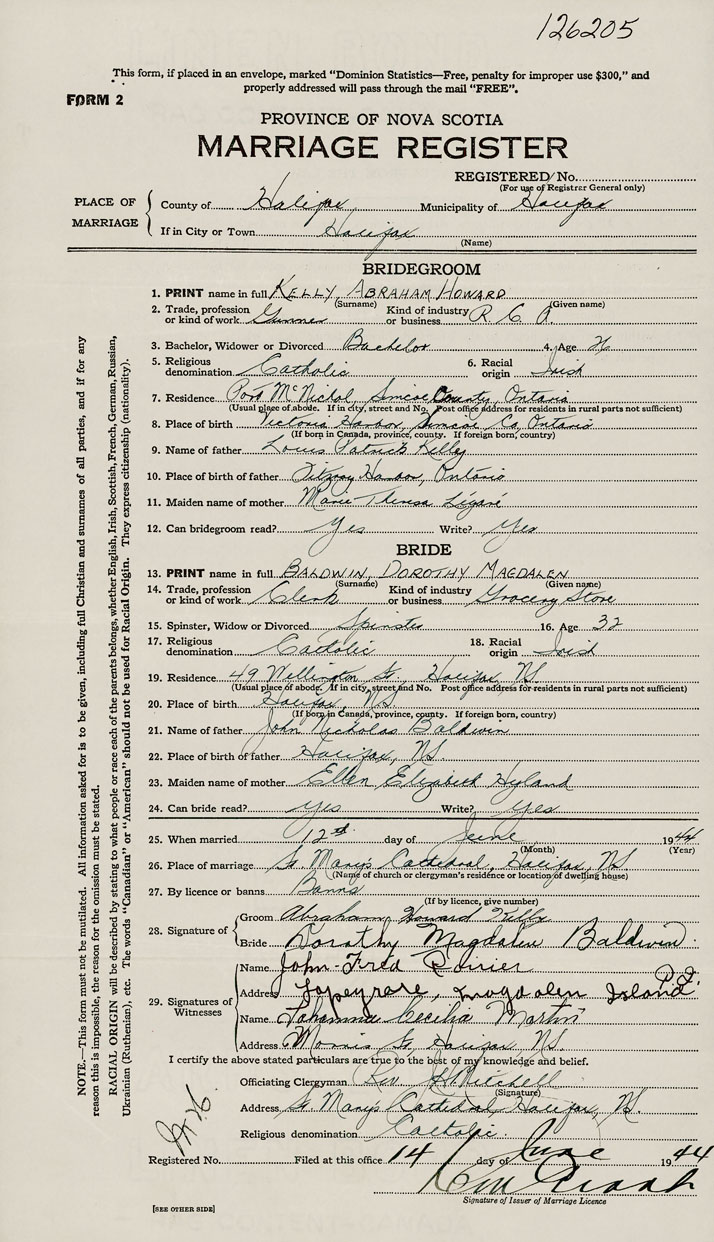 126205
This form, if placed in an envelope, marked "Dominion Statistics—Free, penalty for improper use $300," and
properly addressed will pass through the mail "FREE".
FORM 2
PROVINCE OF NOVA SCOTIA
MARRIAGE REGISTER
REGISTERED No.
(For use of Registrar General only)
PLACE OF MARRIAGE
County of Halifax Municipality of Halifax
If in City or Town Halifax
(Name)
BRIDEGROOM
1. PRINT name in full KELLY, ABRAHAM HOWARD
(Surname) (Given name)
2. Trade, profession or kind of work Gunner Kind of industry or business R.C.A.
3. Bachelor, Widower or Divorced Bachelor 4. Age 26
5. Religious denomination Catholic 6. Racial origin Irish
7. Residence Port McNichol, Simcoe County, Ontario
(Usual place of abode. If in city, street and No. Post office address for residents in rural parts not sufficient)
8. Place of birth Victoria Harbor, Simcoe Co, Ontario
(If born in Canada, province, county. If foreign born, country)
9. Name of father Louis Patrick Kelly
10. Place of birth of father Harbor, Ontario
11. Maiden name of mother Marie Theresa Légaré
12. Can bridegroom read? Yes Write? Yes
BRIDE
13. PRINT name in full BALDWIN, DOROTHY MAGDALEN
(Surname) (Given name)
14. Trade, profession or kind of work Clerk Kind of industry or business Grocery Store
15. Spinster, Widow or Divorced Spinster 16. Age 32
17. Religious denomination Catholic 18. Racial origin Irish
19. Residence 49 Wellington St., Halifax, N.S.
(Usual place of abode. If in city, street and No. Post office address for residents in rural parts not sufficient)
20. Place of birth Halifax, N.S.
(If born in Canada, province, county. If foreign born, country)
21. Name of father John Nicholas Baldwin
22. Place of birth of father Halifax, N.S.
23. Maiden name of mother Ellen Elizabeth Hyland
24. Can bride read? Yes Write? Yes
25. When married 12th day of June 1944
(Month) (Year)
26. Place of marriage St. Mary's Cathedral, Halifax, N.S.
(Name of church or clergyman's residence or location of dwelling house)
27. By licence or banns Banns
(If by licence, give number)
28. Signature of
Groom Abraham Howard Kelly
Bride Dorothy Magdalen Baldwin
29. Signatures of Witnesses
Name John Fred Poirier
Address Magdalen Island
Name Johanna Cecilia Martin
Address Morris St. Halifax N.S.
I certify the above stated particulars are true to the best of my knowledge and belief.
Officiating Clergyman Rev. Mitchell
(Signature)
Address St. Mary's Cathedral Halifax, N.S.
Religious denomination Catholic
Registered No. Filed at this office 14 day of June 1944
Signature of Issuer of Marriage Licence
[SEE OTHER SIDE]
NOTE.—This form must not be mutilated. All information asked for is to be given, including full Christian and surnames of all parties, and if for any
reason this is impossible, the reason for the omission must be stated.
RACIAL ORIGIN will be described by stating to what people or race each of the parents belongs, whether English, Irish, Scottish, French, German, Russian,
Ukrainian (Ruthenian), etc. The words "Canadian" or "American" should not be used for Racial Origin. They express citizenship (nationality).